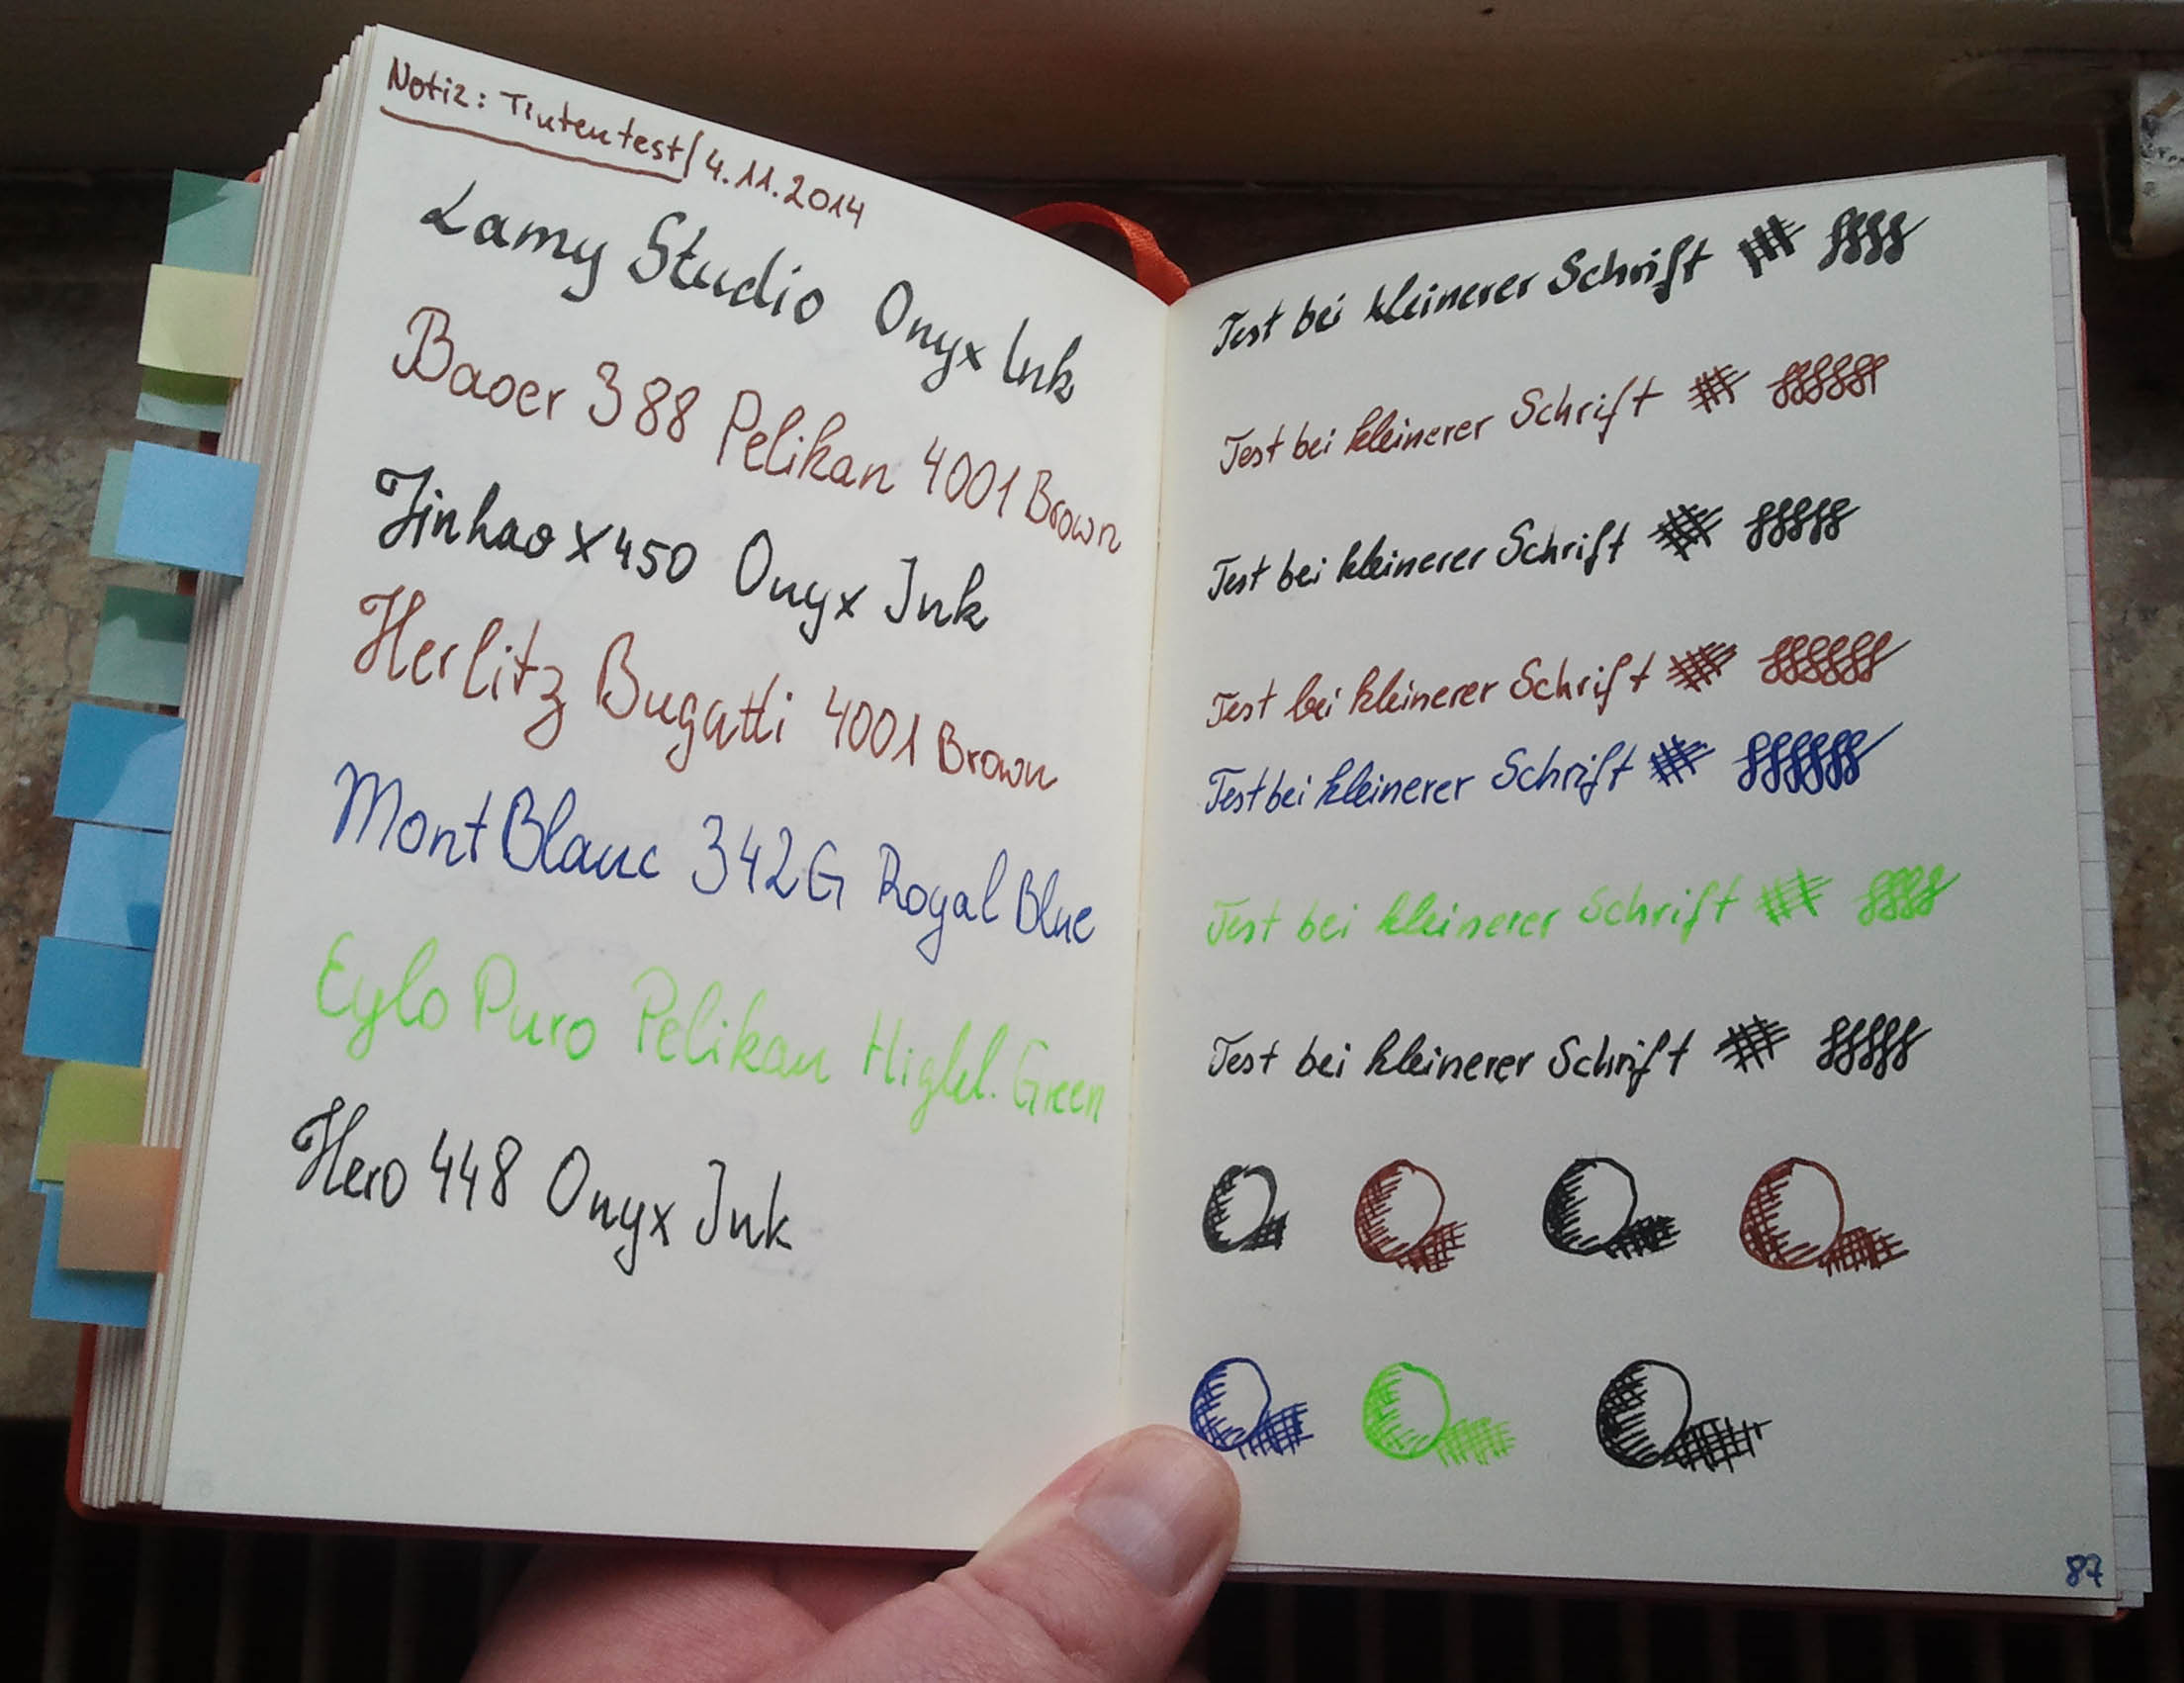 Notiz: Tintentest / 4.11.2014
Lamy Studio Onyx Ink
Baoer 388 Pelikan 4001 Brown
Jinhao X450 Onyx Ink
Herlitz Bugatti 4001 Brown
MontBlanc 342G Royal Blue
Eylo Puro Pelikan Highl. Green
Hero 448 Onyx Ink
Test bei kleinerer Schrift
Test bei kleinerer Schrift
Test bei kleinerer Schrift
Test bei kleinerer Schrift
Test bei kleinerer Schrift
Test bei kleinerer Schrift
Test bei kleinerer Schrift
87